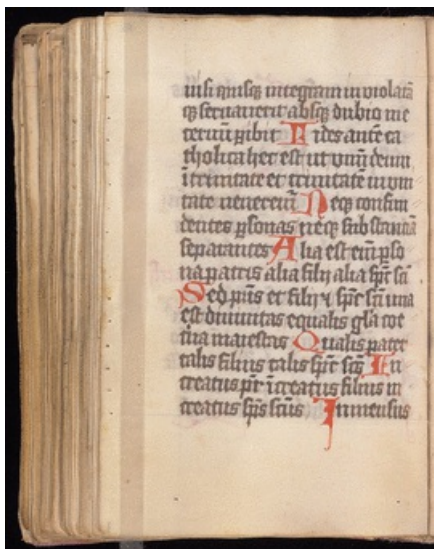 nisi quisqꝫ integram inuiolatā
qꝫ seruauerit absqꝫ dubio ine
ternū ꝑibit Fides autē ca
tholica hec est ut vnū deum
ī trinitate et trinitatē in vni
tate veneremᷣ Neqꝫ confun
dentes ꝑsonas neqꝫ substantiā
separantes Alia est eīm ꝑso
na patris alia filij alia spūs sā
Sed pris et filij ⁊ spūs sā una
est diuinitas equalis gl̄a coe
terna maiestas Qualis pater
talis filius talis spūs scūs In
creatus pr̄ īcreatus filius in
creatus spūs scūs Inmensus